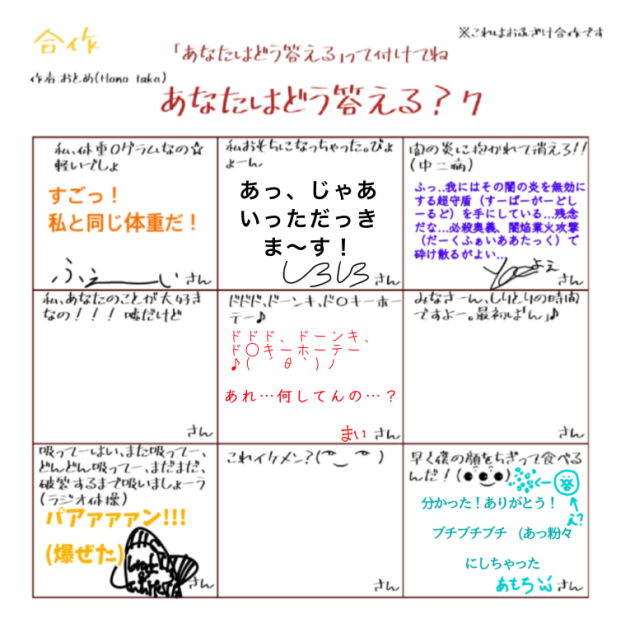 合作
※これはおふざけ合作です
「あなたはどう答える」って付けてね
作者:おとめ(Hono takn)
あなたはどう答える？7
私、体重0グラムなの☆
軽いでしょ
すごっ！
私と同じ体重だ！
ふぇーい さん
私おもちになっちゃった。ぴょ
ょーん
あっ、じゃあ
いっただっき
ま〜す！
しろしろ さん
闇の炎に抱かれて消えろ!!
(中二病)
ふっ..我にはその闇の炎を無効に
する超守盾（すーぱーがーどし
ーるど）を手にしている...残念
だな...必殺奥義、闇焔業火攻撃
（だーくふぁいああたっく）で
砕け散るがよい...
さん
私、あなたのことが大好き
なの！！！嘘だけど
さん
ドドド、ドーンキ、ド〇キーホー
テー♪
ドドド、ドーンキ、
ド〇キーホーテー
♪(　´θ｀)ノ
あれ…何してんの…？
まい さん
みなさーん、しりとりの時間
ですよー。最初はん」♪
さん
吸ってーはい、また吸ってー、
どんどん吸ってー、まだまだ、
破裂するまで吸いましょーう
(ラジオ体操)
パアァァァン!!!
(爆ぜた)
さん
これイケメン？(͡° ͜ ͡°)
さん
早く僕の顔をちぎって食べる
んだ！(●●●)
くー
え?
分かった！ありがとう！
ブチブチブチ　(あっ粉々
にしちゃった
あもち さん